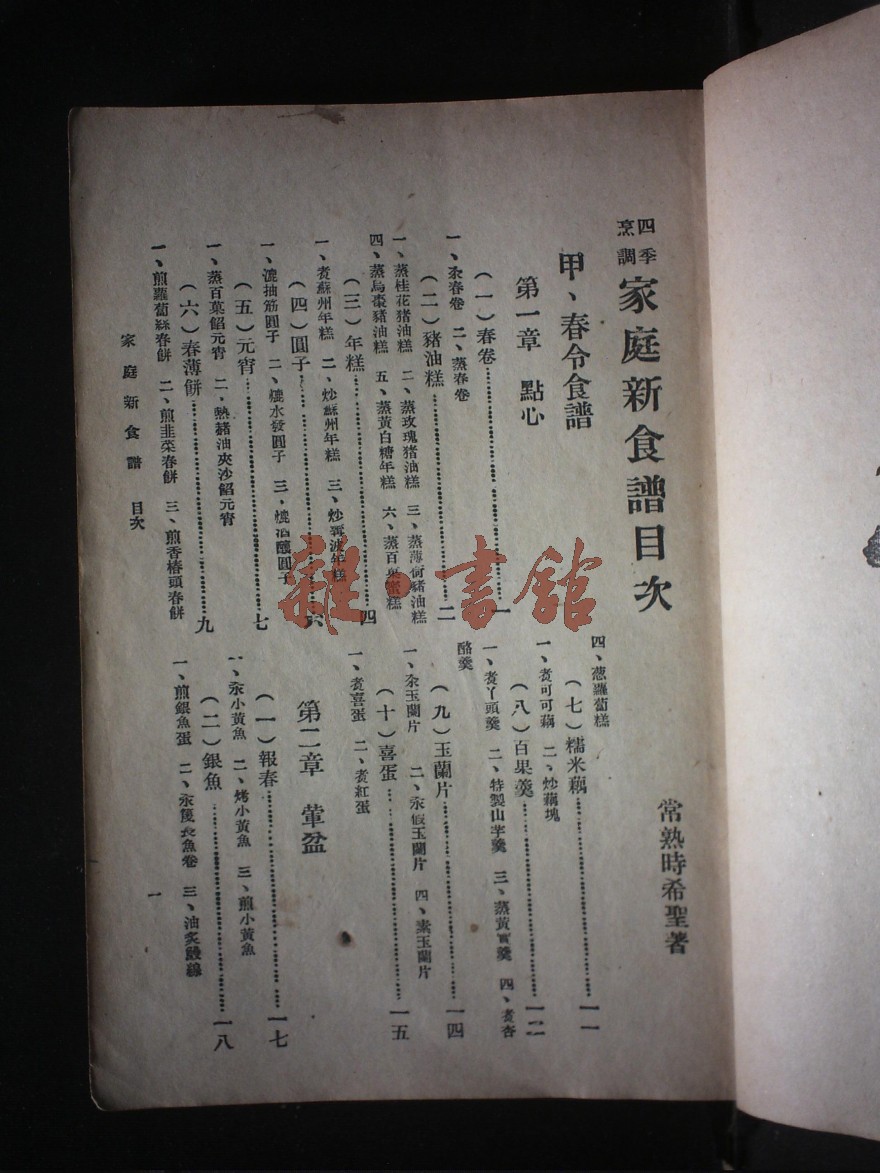 四季
烹調
家庭新食譜目次
常熟時希聖著
甲、春令食譜
第一章 點心
(一)春卷……一
一、汆春卷 二、蒸春卷
(二)豬油糕……二
一、蒸桂花猪油糕 二、蒸玫瑰猪油糕 三、蒸薄荷豬油糕
四、蒸烏棗豬油糕 五、蒸黃白糖年糕 六、蒸百菓蜜糕
(三)年糕……四
一、煮蘇州年糕 二、炒蘇州年糕 三、炒寗波年糕
(四)圓子……六
一、漉抽筋圓子 二、漉水發圓子 三、漉酒釀圓子
(五)元宵……七
一、蒸百菓餡元宵 二、熱豬油夾沙餡元宵
(六)春薄餅……九
一、煎蘿蔔絲春餅 二、煎韭菜春餅 三、煎香椿頭春餅
四、葱蘿蔔糕
(七)糯米藕……一一
一、煮可可藕 二、炒藕塊
(八)百果羹……一二
一、煮丫頭羹 二、特製山芋羹 三、蒸黃實羹 四、煮杏
酪羹
(九)玉蘭片……一四
一、汆玉蘭片 二、汆假玉蘭片 四、素玉蘭片
(十)喜蛋……一五
一、煮喜蛋 二、煮紅蛋
第二章 葷盆
(一)報春……一七
一、汆小黃魚 二、烤小黃魚 三、煎小黃魚
(二)銀魚……一八
一、煎銀魚蛋 二、汆 魚卷 三、油炙
家庭新食譜 目次
一
雜·書館